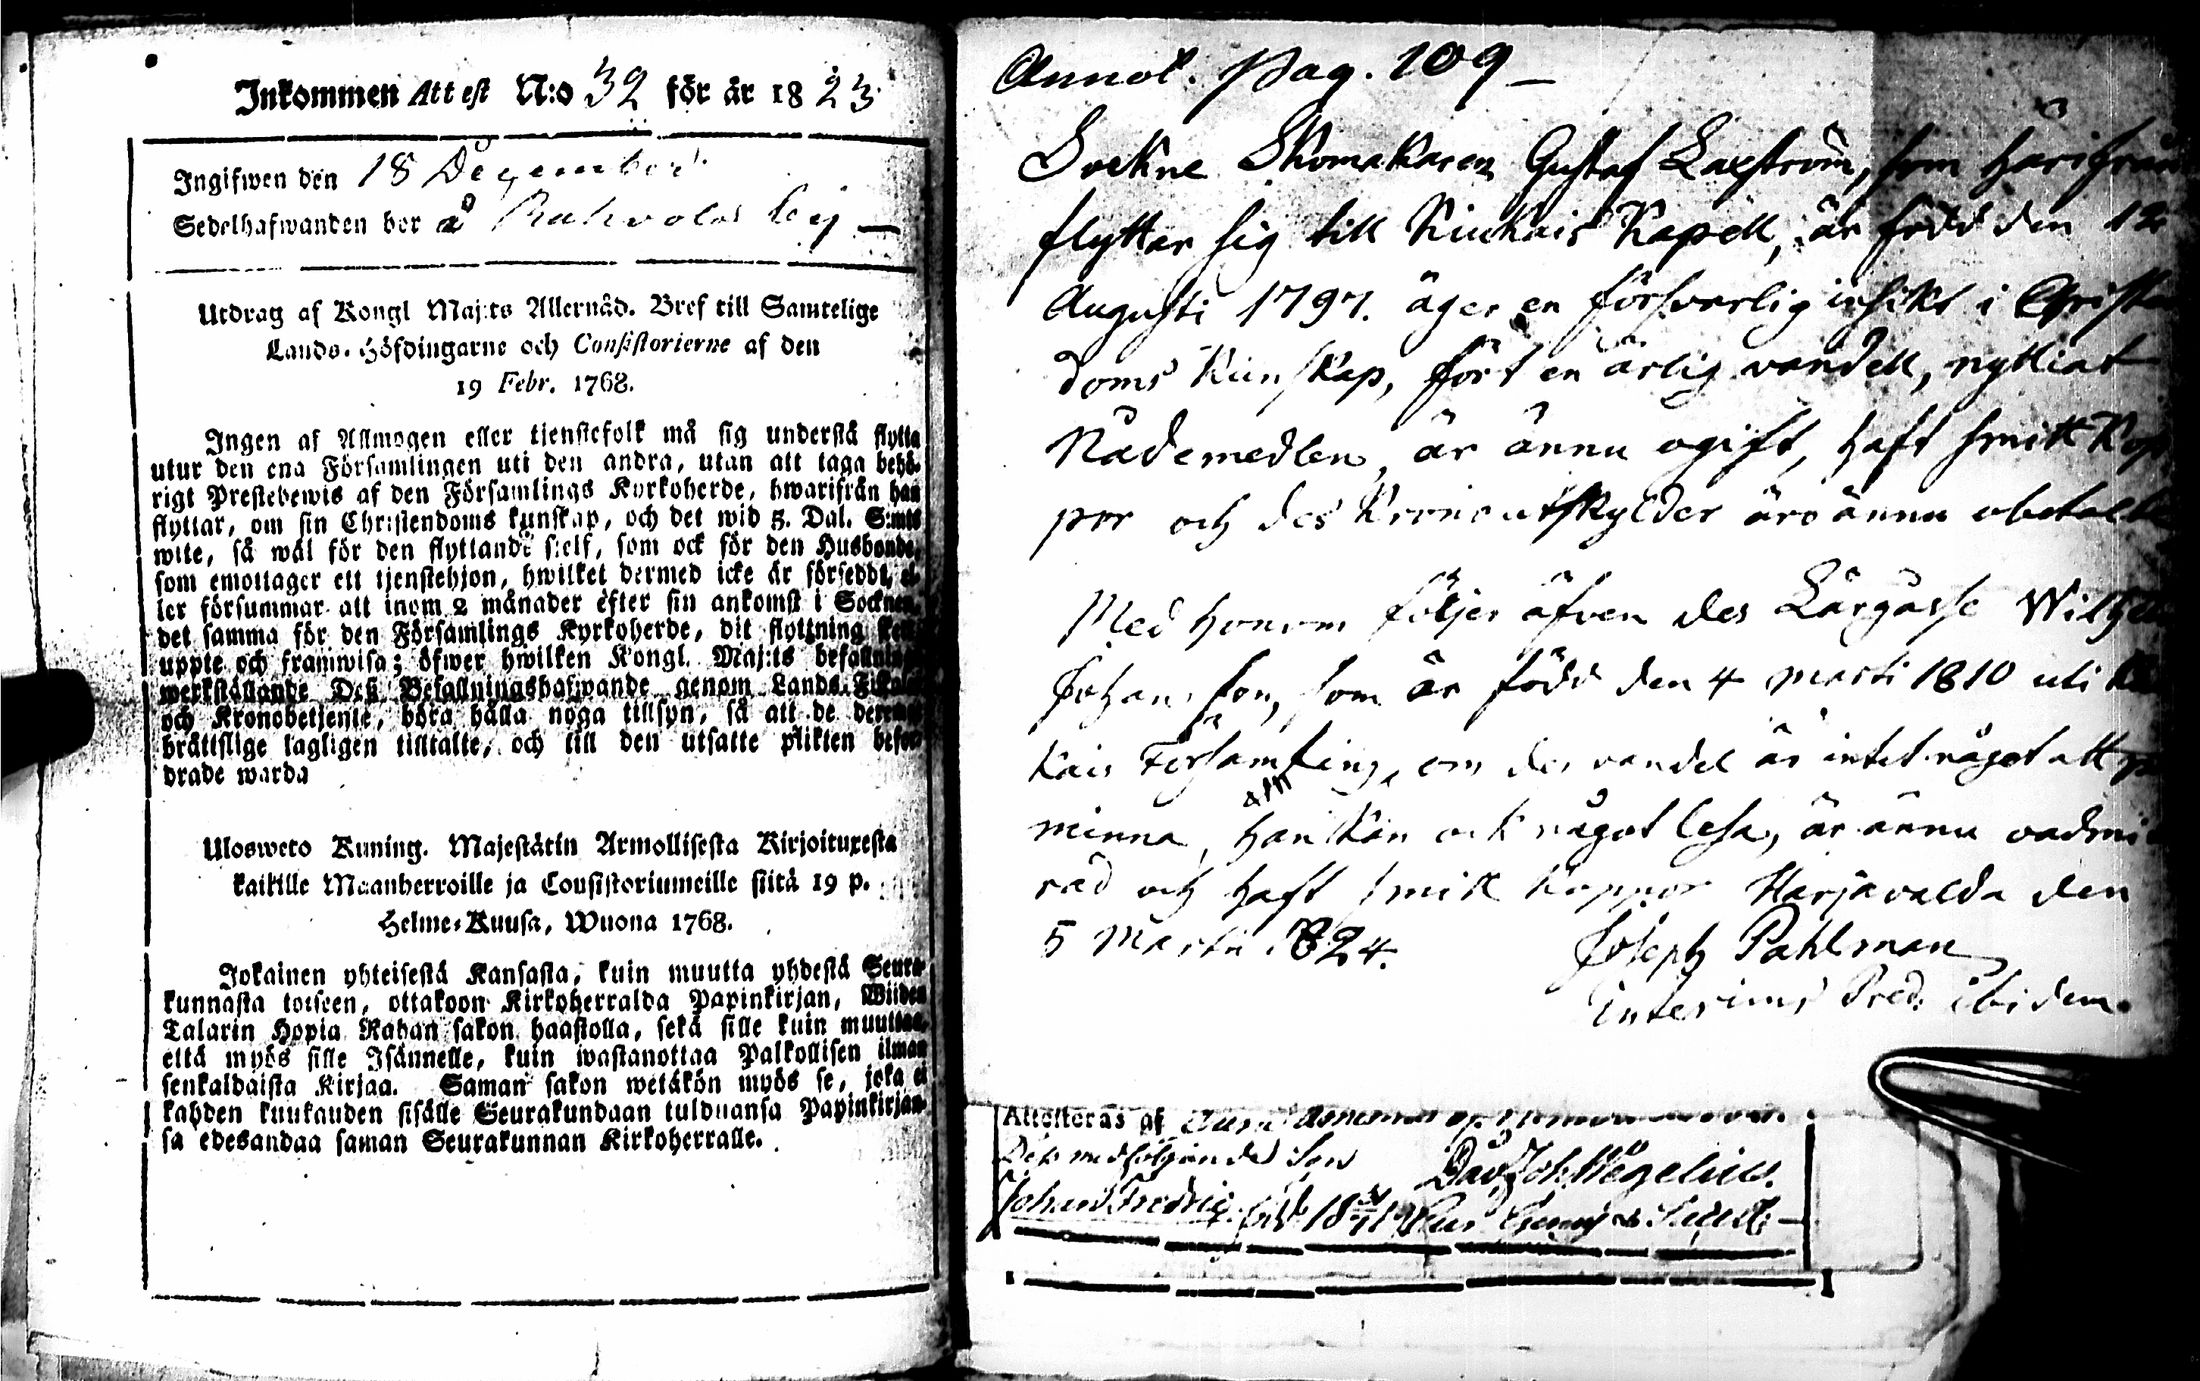 Inkommen Attest N:o 32 för år 1823
Ingifwen den 18 December
Sedelhafwanden bor å
Utdrag af Kongl Maj:ts Allernåd. Bref till Samtelige
Lands-Höfdingarne och Consistorierne af den
19 Febr. 1768.
Ingen af Allmogen eller tjenstefolk må sig understå flytta
utur den ena Församlingen uti den andra, utan att taga behö-
rigt Prestebewis af den Församlings Kyrkoherde, hwarifrån han
flyttar, om sin Christendoms kunskap, och det wid 5. Dal. S:mts
wite, så wäl för den flyttande sielf, som ock för den Husbonde,
som emottager ett tjenstehjon, hwilket dermed icke är försedd, el-
ler försummar att inom 2 månader efter sin ankomst i Socknen,
det samma för den Församlings Kyrkoherde, dit flyttning sker
uppte och framwisa; öfwer hwilken Kongl. Maj:ts befallning
werkställande Deß Befallningshafwande genom Lands-Fiskaler
och Kronobetjente, böra hålla noga tillsyn, så att de deremot
bråttslige lagligen tilltalte, och till den utsatte plikten befor-
drade warda
Ulosweto Kuning. Majestätin Armollisesta Kirjoituxesta
kaikille Maanherroille ja Consistoriumeille siitä 19 p.
Helme-Kuusa, Wuona 1768.
Jokainen yhteisestä Kansasta, kuin muutta yhdestä Seura-
kunnasta toiseen, ottakoon Kirkoherralda Papinkirjan, Wiiden
Talarin Hopia Rahan sakon haastolla, sekä sille kuin muuttaa,
että myös sille Isännelle, kuin wastanottaa Palkollisen ilman
senkaldaista Kirjaa. Saman sakon wetäkön myös se, joka ei
kahden kuukauden sisälle Seurakundaan tulduansa Papinkirjan-
sa edesandaa saman Seurakunnan Kirkoherralle.
Annot. Pag. 109
Sockne Skomakaren Gustaf Laxström, som härifrån
flyttar sig till Kiukais Kapell, är född den 12
Augusti 1797. äger en försvarlig insikt i Christen
doms Kunskap, fört en ärlig vandell, nyttiat
Nådemedlen, är ännu ogift, haft smitt Kop
por och des Kronoutskylder äro ännu obetalte
Med honom följer äfven des Lärgåsse Wilhelm
Johansson, som är född den 4 Marti 1810 uti Kiu
kais Församling, om des vandel är intet något att på
minna, han kan ock något lesa, är ännu oadmitte
rad och haft smitt Koppor Harjavalda den
5 Martii 1824. Joseph Pahlman
interims Pred. ibidem.
Attesteras af
Dess medföljande Son Dav. Joh. Wegelius.
Johan Fredric född